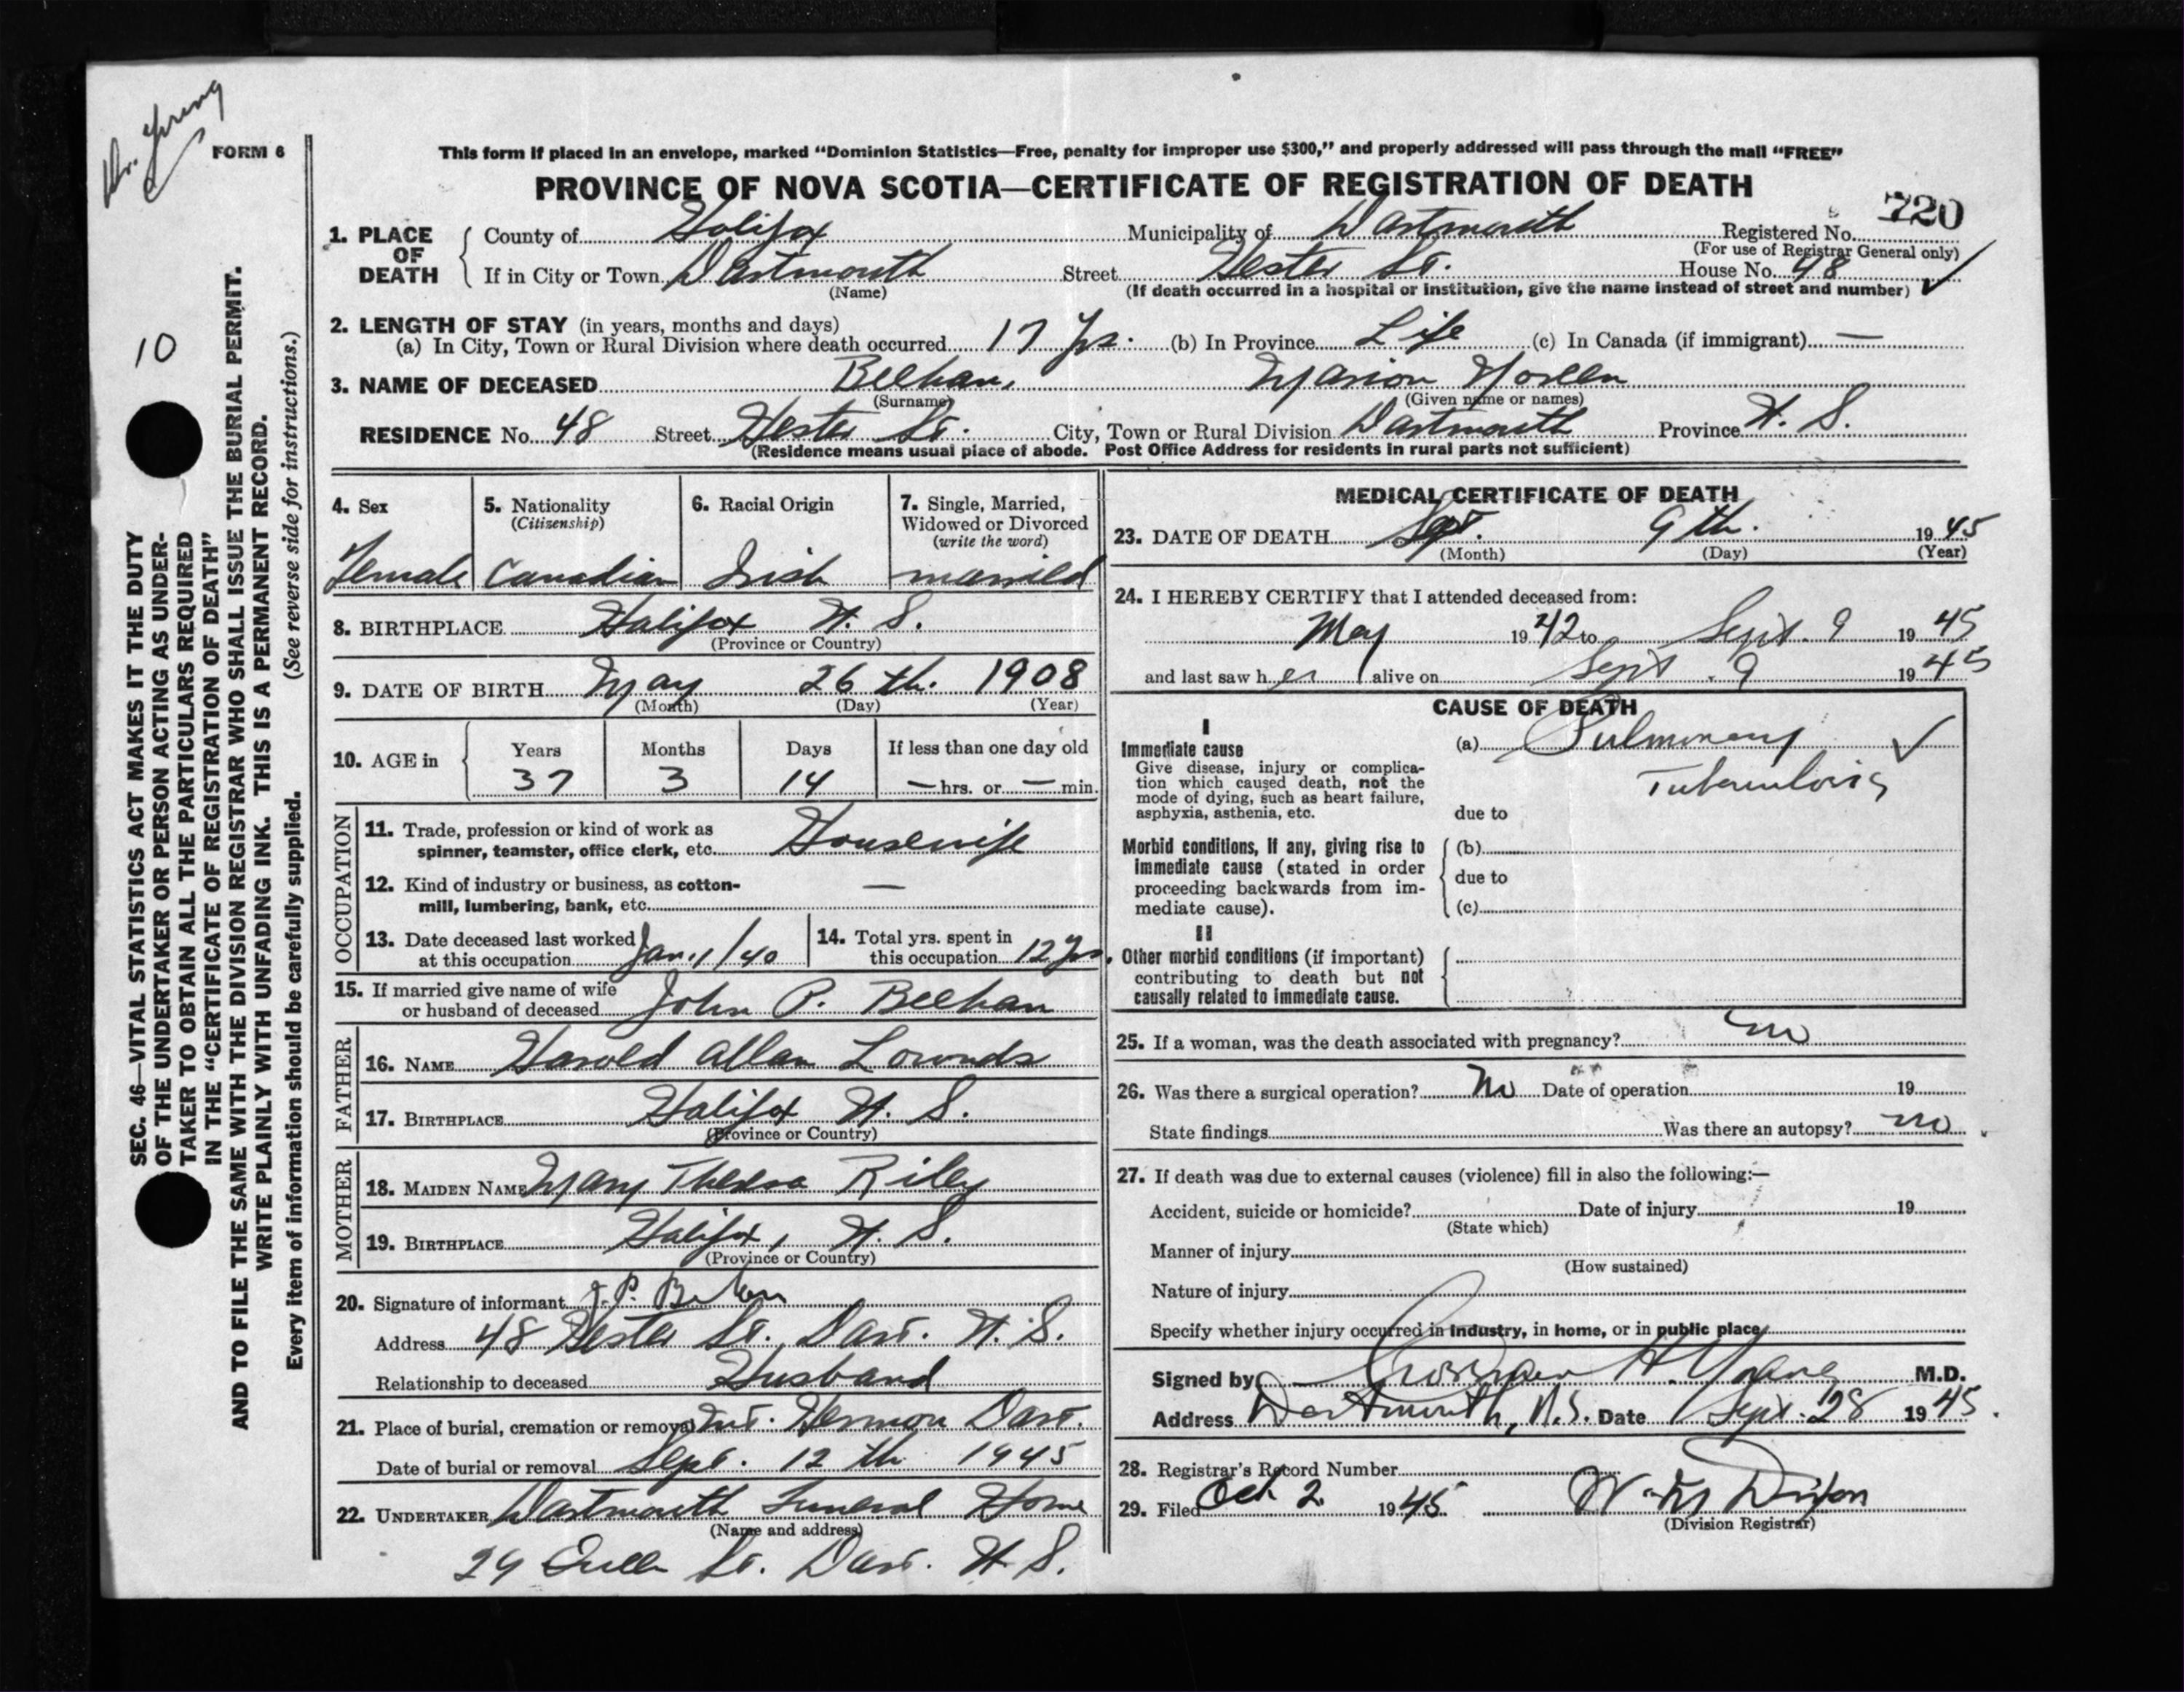 Dr. Young
FORM 6
10
SEC. 46—VITAL STATISTICS ACT MAKES IT THE DUTY
OF THE UNDERTAKER OR PERSON ACTING AS UNDER-
TAKER TO OBTAIN ALL THE PARTICULARS REQUIRED
IN THE "CERTIFICATE OF REGISTRATION OF DEATH"
AND TO FILE THE SAME WITH THE DIVISION REGISTRAR WHO SHALL ISSUE THE BURIAL PERMIT.
WRITE PLAINLY WITH UNFADING INK. THIS IS A PERMANENT RECORD.
Every item of information should be carefully supplied. (See reverse side for instructions.)
This form if placed in an envelope, marked "Dominion Statistics—Free, penalty for improper use $300," and properly addressed will pass through the mail "FREE"
PROVINCE OF NOVA SCOTIA—CERTIFICATE OF REGISTRATION OF DEATH
720
1. PLACE OF DEATH County of Halifax Municipality of Dartmouth Registered No.
(For use of Registrar General only)
If in City or Town Dartmouth Street Hester St. House No. 48
(Name) (If death occurred in a hospital or institution, give the name instead of street and number)
2. LENGTH OF STAY (in years, months and days)
(a) In City, Town or Rural Division where death occurred 17 Yrs. (b) In Province Life (c) In Canada (if immigrant) —
3. NAME OF DECEASED Beehan, Marion Noreen
(Surname) (Given name or names)
RESIDENCE No. 48 Street Hester St. City, Town or Rural Division Dartmouth Province N. S.
(Residence means usual place of abode. Post Office Address for residents in rural parts not sufficient)
4. Sex 5. Nationality 6. Racial Origin 7. Single, Married,
(Citizenship) Widowed or Divorced
(write the word)
Female Canadian Irish married
8. BIRTHPLACE Halifax N. S.
(Province or Country)
9. DATE OF BIRTH May 26 th. 1908
(Month) (Day) (Year)
10. AGE in Years Months Days If less than one day old
37 3 14 — hrs. or — min.
OCCUPATION
11. Trade, profession or kind of work as
spinner, teamster, office clerk, etc. Housewife
12. Kind of industry or business, as cotton- —
mill, lumbering, bank, etc.
13. Date deceased last worked 14. Total yrs. spent in
at this occupation Jan. 1/40 this occupation 12 Yrs.
15. If married give name of wife
or husband of deceased John P. Beehan
FATHER
16. NAME Harold Allan Lownds
17. BIRTHPLACE Halifax N. S.
(Province or Country)
MOTHER
18. MAIDEN NAME Mary Theresa Riley
19. BIRTHPLACE Halifax, N. S.
(Province or Country)
20. Signature of informant J. P. Beehan
Address 48 Hester St., Dart. N. S.
Relationship to deceased Husband
21. Place of burial, cremation or removal Mt. Hermon Dart.
Date of burial or removal Sept. 12 th 1945
22. UNDERTAKER Dartmouth Funeral Home
(Name and address)
29 Queen St. Dart. N. S.
MEDICAL CERTIFICATE OF DEATH
23. DATE OF DEATH Sept. 9th. 1945
(Month) (Day) (Year)
24. I HEREBY CERTIFY that I attended deceased from:
May 1942 to Sept. 9 1945
and last saw her alive on Sept. 9 1945
CAUSE OF DEATH
I
Immediate cause
Give disease, injury or complica-
tion which caused death, not the
mode of dying, such as heart failure,
asphyxia, asthenia, etc.
(a) Pulmonary
Tuberculosis
due to
Morbid conditions, if any, giving rise to
immediate cause (stated in order
proceeding backwards from im-
mediate cause).
(b)
due to
(c)
II
Other morbid conditions (if important)
contributing to death but not
causally related to immediate cause.
25. If a woman, was the death associated with pregnancy? no
26. Was there a surgical operation? No Date of operation 19
State findings Was there an autopsy? no
27. If death was due to external causes (violence) fill in also the following:—
Accident, suicide or homicide? Date of injury 19
(State which)
Manner of injury
(How sustained)
Nature of injury
Specify whether injury occurred in industry, in home, or in public place
Signed by H. Young M.D.
Address Dartmouth, N.S. Date Sept. 28 1945.
28. Registrar's Record Number
29. Filed Oct. 2 1945 Dixon
(Division Registrar)